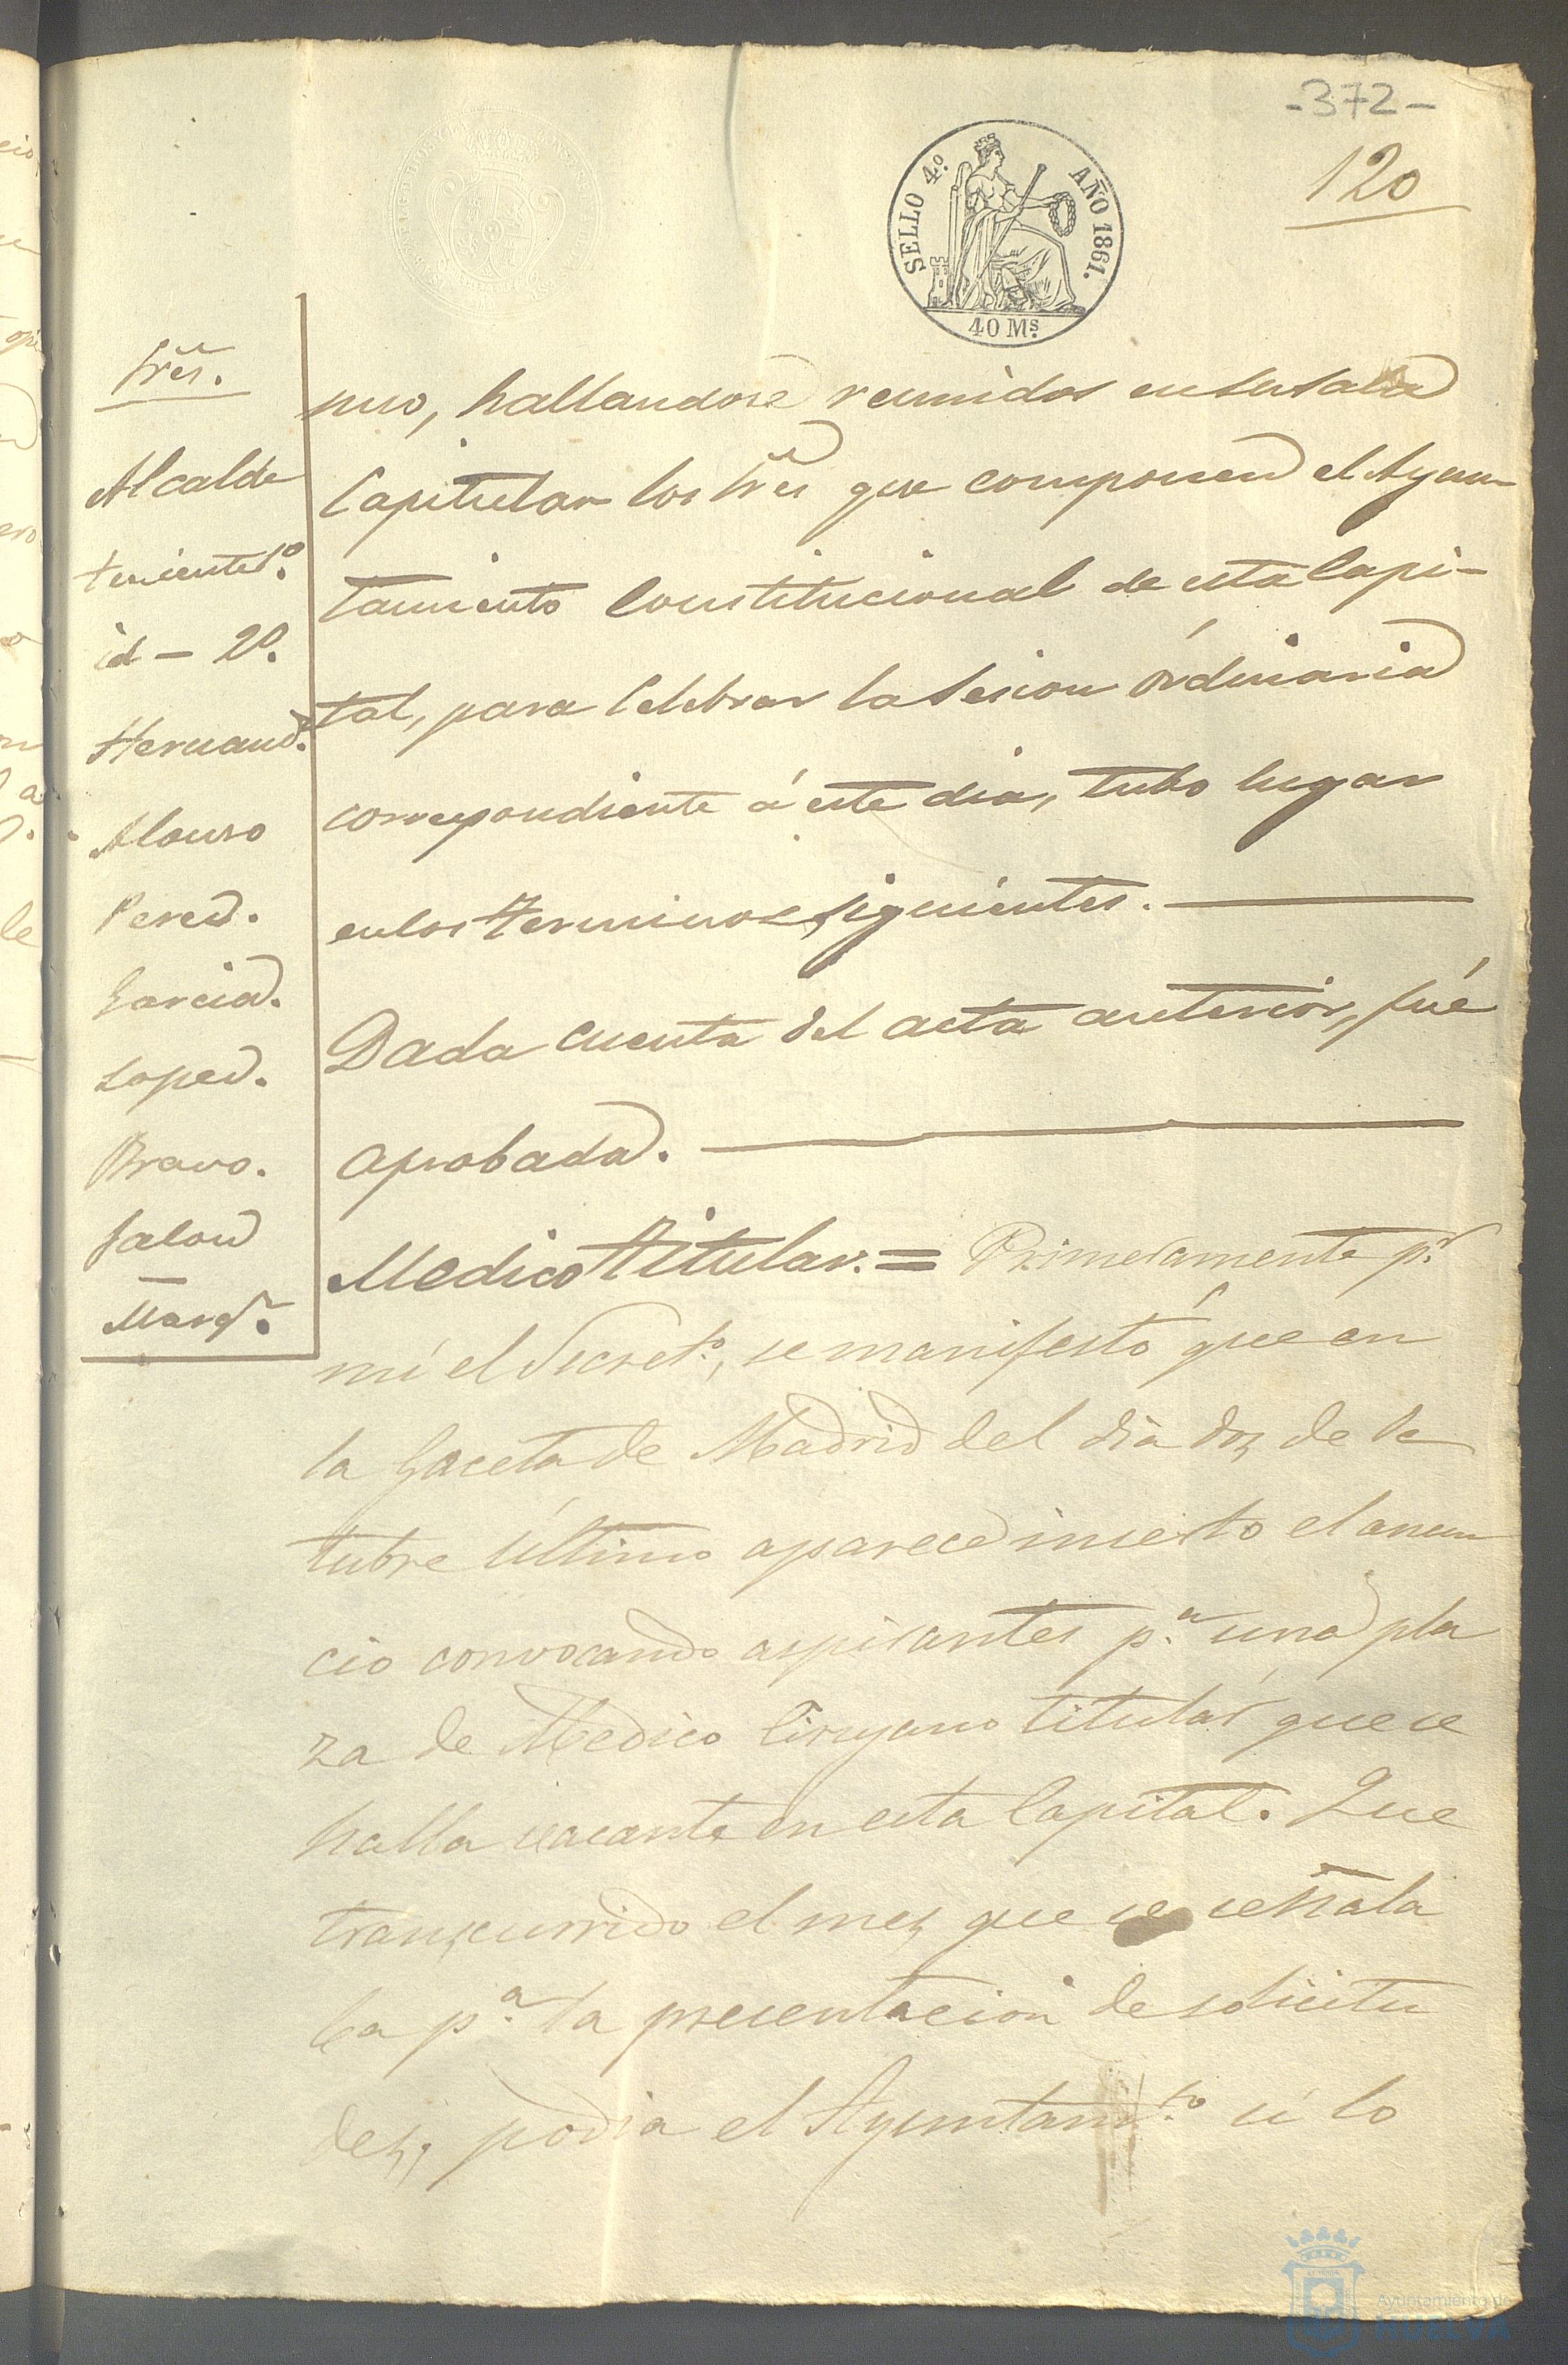 -372-
120
SELLO 4.º AÑO 1861.
40 Ms.
Sres.
Alcalde
teniente 1.º
id - 2º.
Hernand.
Alonso
Perez.
Garcia.
Lopez.
Bravo.
Jalon
Marqz.
nuo, hallandose reunidos en su sala
Capitular los Sres que componen el Ayun-
tamiento Constitucional de esta Capi-
tal, para Celebrar la Sesion órdinaria
correspondiente á este dia, tubo lugar
en los terminos siguientes.
Dada cuenta del acta anterior, fué
aprobada.
Medico titular. = Primeramente p.r
mi el Secret.º, se manifestó que en
la Gaceta de Madrid del dia dos de Oc
tubre último aparece inserto el anun
cio convocando aspirantes p.a una pla
za de Medico Cirujano titular que se
halla vacante en esta Capital. Que
transcurrido el mes que se señala
ba p.a la presentacion de solicitu
des, podia el Ayuntam.to si lo
Ayuntamiento de
HUELVA